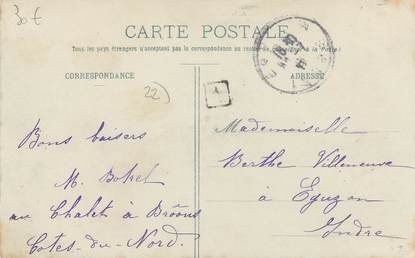 30 €
CARTE POSTALE
Tous les pays étrangers n'acceptent pas la correspondance au recto
CORRESPONDANCE
ADRESSE
22)
Bons baisers
M. Botrel
au Chalet à Broons
Cotes-du-Nord.
Mademoiselle
Berthe Villeneuve
à Eguzon
Indre